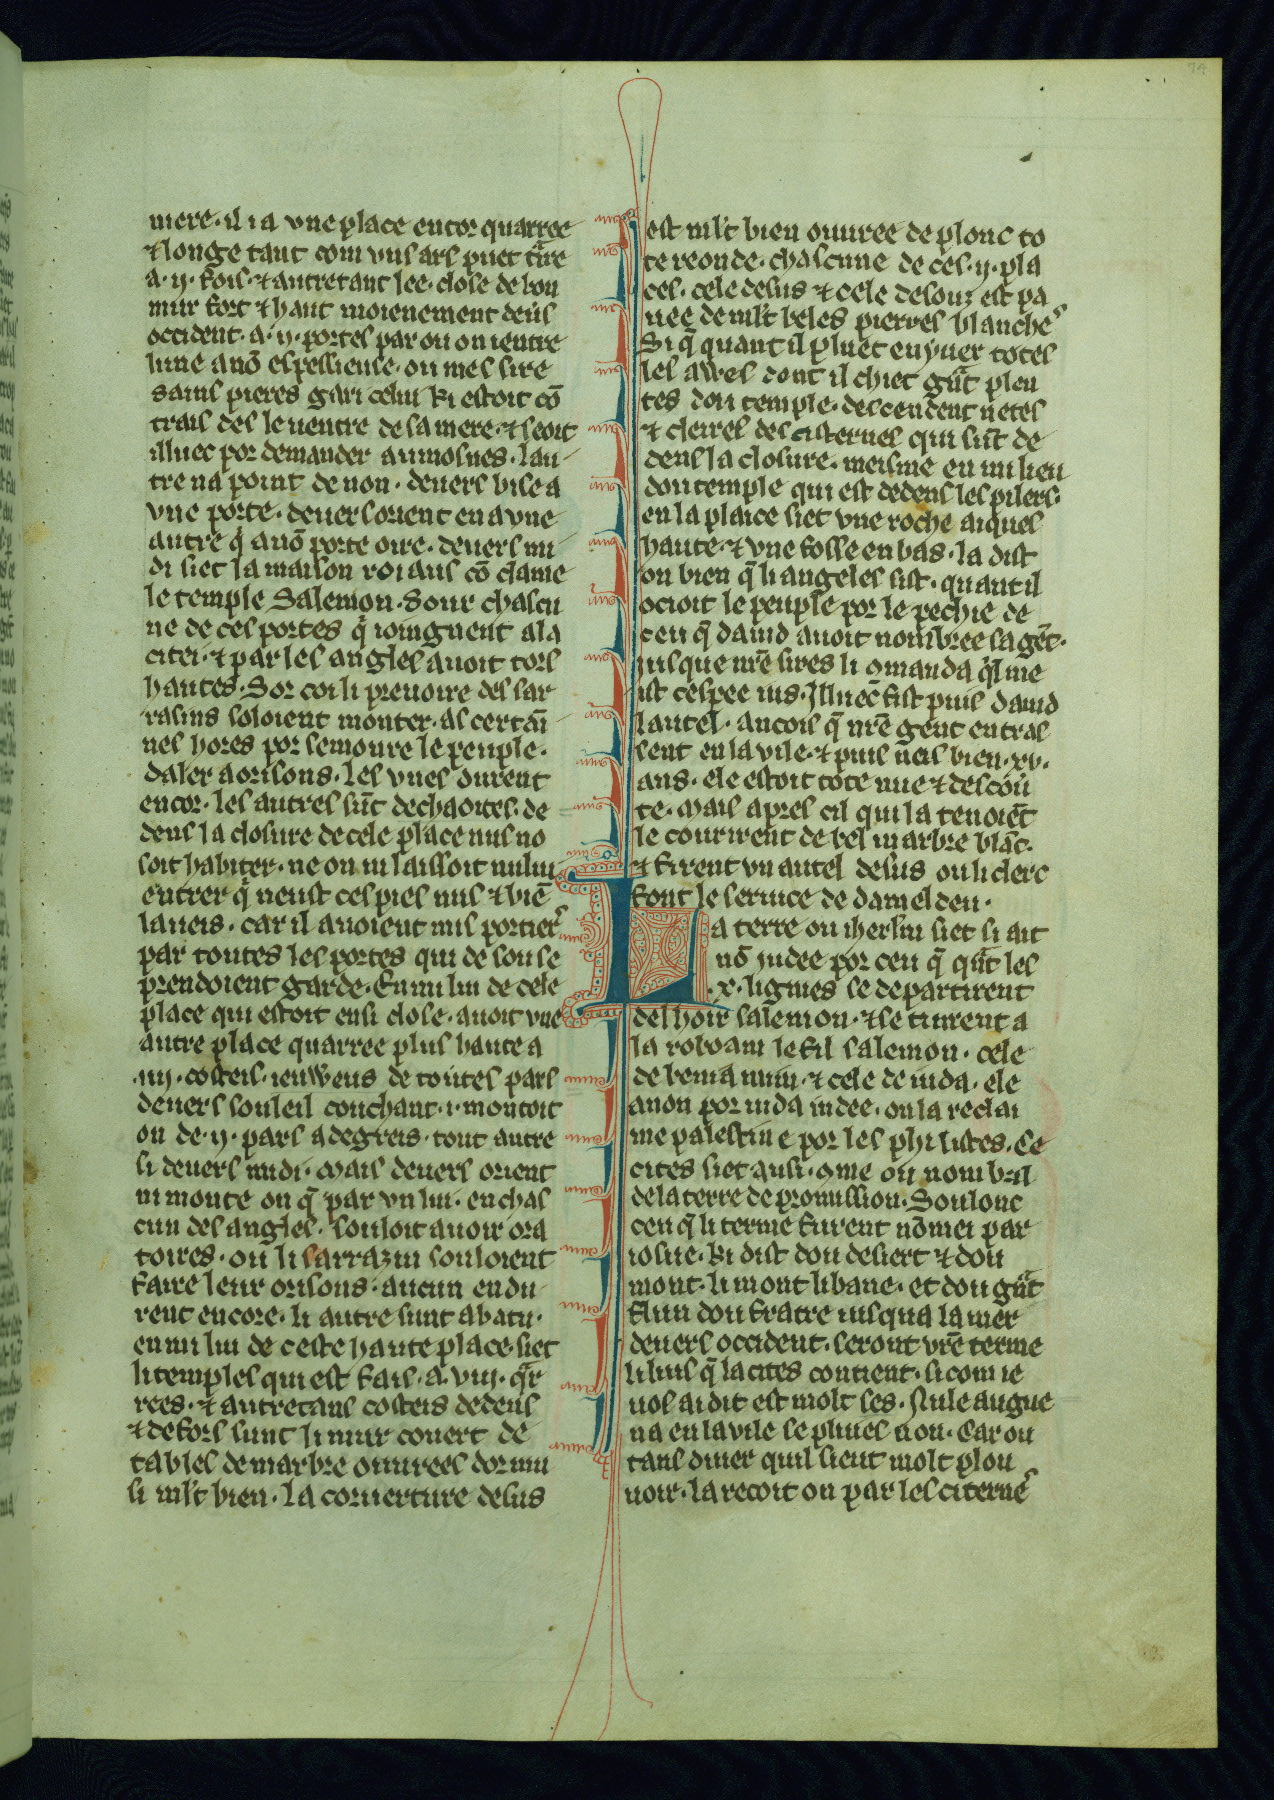 74
niere · il i a vne place encor quarree
⁊ longe tant com vns ars puet t̾re
a · ij · fois · ⁊ autretant lee · close de bon
mur fort ⁊ haut moienement deũs
occident · a · ij · portes par ou on i entre
lune a nõ espessieuse · ou mes sire
sains pieres gari celui ki estoit cõ
trais des le uentre de sa mere · ⁊ seoit
illuec por demander aumosnes · lau
tre na point de non · deuers bise a
vne porte · deuers orient en a vne
autre q̃ a nõ porte oire · deuers mi
di siet la maison roiaus cõ claime
le temple Salemon · Sour chascu
ne de ces portes q̃ ioingnent a la
citei · ⁊ par les angles auoit tors
hautes · Sor coi li prevoire des sar
rasins soloient monter · as certai
nes hores por semonre le peuple ·
daler a orisons · les vnes durent
encor · les autres sũt dechaoites · de
dens la closure de cele place nus no
soit habiter · ne on ni laissoit nului
entrer q̃ neust ces pies nus ⁊ biẽ
laueis · car il auoient mis portiers
par toutes les portes qui de sou se
prendoient garde · En mi liu de cele
place qui estoit ensi close · auoit vne
autre place quarree plus haute a
· iiij · costeis · ieuweus de toutes pars
deuers souleil couchant · i · montoit
on de · ij · pars a degreis · tout autre
si deuers midi · Mais deuers orient
ni monte on q̃ par vn liu · en chas
cun des angles · souloit auoir ora
toires · ou li sarrazin souloient
faire leur orisons · aucun en du
rent encore · li autre sunt abatu ·
en mi liu de ceste haute place · siet
li temples qui est fais · a · viij · q̃r
rees · ⁊ autretans costeis dedens
⁊ defors sunt li mur couert de
tables de marbre ouurees dor mu
si ml̃t bien · la couerture desus
est ml̃t bien ouuree de plonc to
te reonde · chascune de ces · ij · pla
ces · cele desus ⁊ cele desouz est pa
uee de ml̃t beles pierres blanches
Si q̃ quant il pluet en yuer totes
les awes dont il chiet gñt plen
tes dou temple · descendent netes
⁊ cleires des cisternes qui sũt de
dens la closure · meisme en mi lieu
dou temple qui est dedens les pilers ·
en la plaice siet vne roche aiques
haute · ⁊ vne fosse en bas · la dist
on bien q̃ li angeles sist · quant il
ocioit le peuple por le pechie de
ceu q̃ dauid auoit nombree sa gẽt ·
iusque nr̃e sires li ꝯmanda q̃l me
ist cespee ius · Illuec fist puis dauid
lautel · ancois q̃ nr̃e gent entras
sent en la vile · ⁊ puis ñeis bien · xv ·
ans · ele estoit tote nue ⁊ descou
te · Mais apres cil qui la tenoiẽt
le couurirent de bel marbre blãc ·
⁊ firent vn autel desus ou li clerc
font le seruice de damelden ·
La terre ou iherl̃m siet si ait
nõ judee por ceu q̃ qñt les
· x · lignies se departirent
del hoir salemon · ⁊ se tinrent a
la roboam le fil salemon · cele
de beniamim · ⁊ cele de iuda · ele
a non por iuda iudee · ou la reclai
me palestine por les philistes · Ce
cites siet ausi · ꝯme ou nombril
de la terre de promission · Soulonc
ceu q̃ li terme furent nõmei par
iosue · Ki dist dou desert ⁊ dou
mont · li mont libane · et dou gñt
flun dou fratre iusqua la mer
deuers occident · seront vr̃e terme
li lius q̃ la cites contient · si com ie
uos ai dit est molt ses · Nule augue
na en la vile se pluies non · Car ou
tans diuer quil sieut molt plou
uoir · la recoit on par les citernes